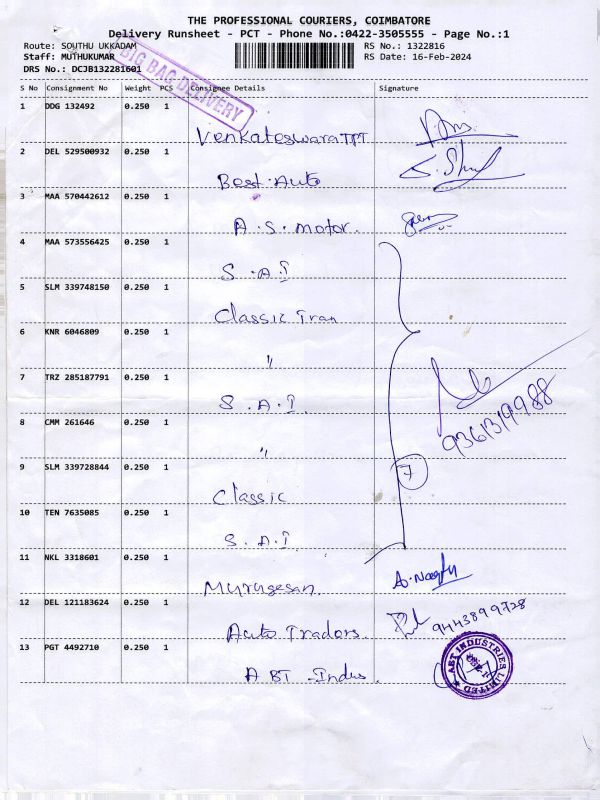 THE PROFESSIONAL COURIERS, COIMBATORE
Delivery Runsheet - PCT - Phone No.:0422-3505555 - Page No.:1
Route: SOUTHU UKKADAM RS No.: 1322816
Staff: MUTHUKUMAR RS Date: 16-Feb-2024
DRS No.: DCJB132281601
BIG BAG DELIVERY
S No Consignment No Weight PCS Consignee Details Signature
1 DDG 132492 0.250 1
Venkateswara TPT
2 DEL 529500932 0.250 1
Best Auto
3 MAA 570442612 0.250 1
A.S. Motor.
4 MAA 573556425 0.250 1
S.A.I
5 SLM 339748150 0.250 1
Classic Tran
6 KNR 6046809 0.250 1
"
7 TRZ 285187791 0.250 1
S.A.I.
9361319988
8 CMM 261646 0.250 1
"
7
9 SLM 339728844 0.250 1
Classic
10 TEN 7635085 0.250 1
S.A.I
11 NKL 3318601 0.250 1
Murugesan.
12 DEL 121183624 0.250 1
9443899728
Auto Tradors.
13 PGT 4492710 0.250 1
ABT Indus.
ABT INDUSTRIES LIMITED